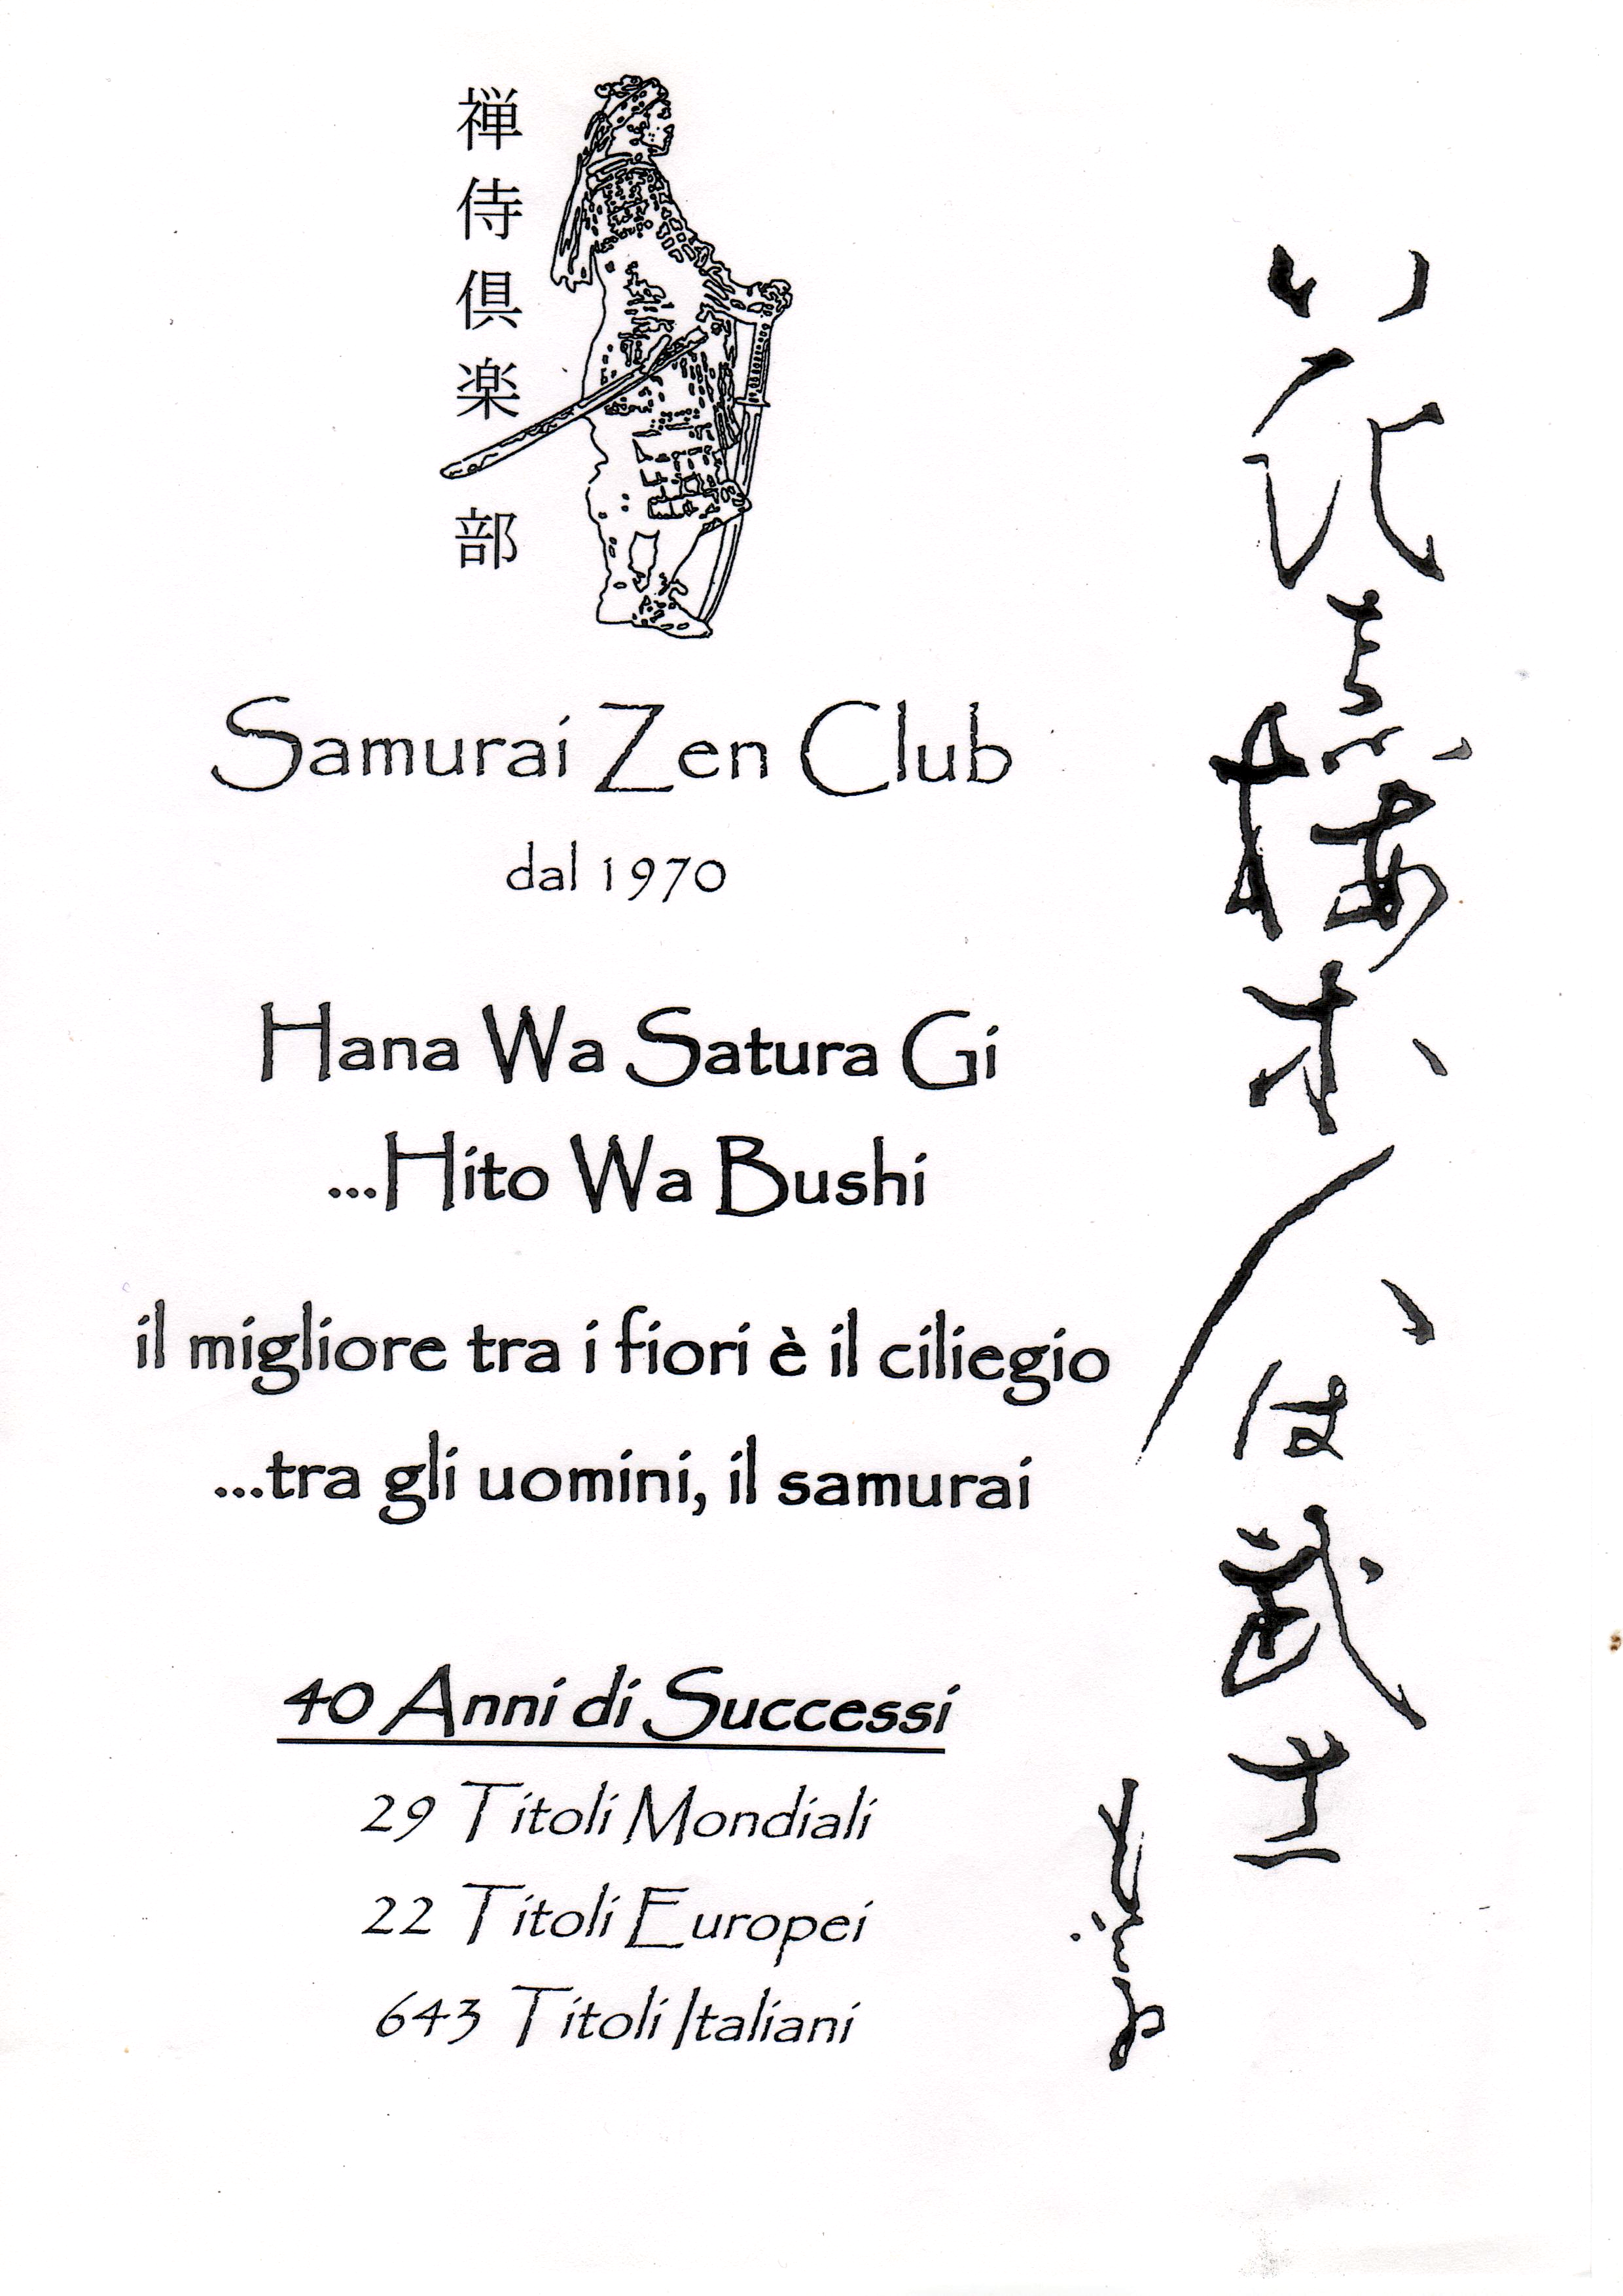 禅侍倶楽部
Samurai Zen Club
dal 1970
Hana Wa Satura Gi
...Hito Wa Bushi
il migliore tra i fiori è il ciliegio
...tra gli uomini, il samurai
40 Anni di Successi
29 Titoli Mondiali
22 Titoli Europei
643 Titoli Italiani
花は桜木人は武士